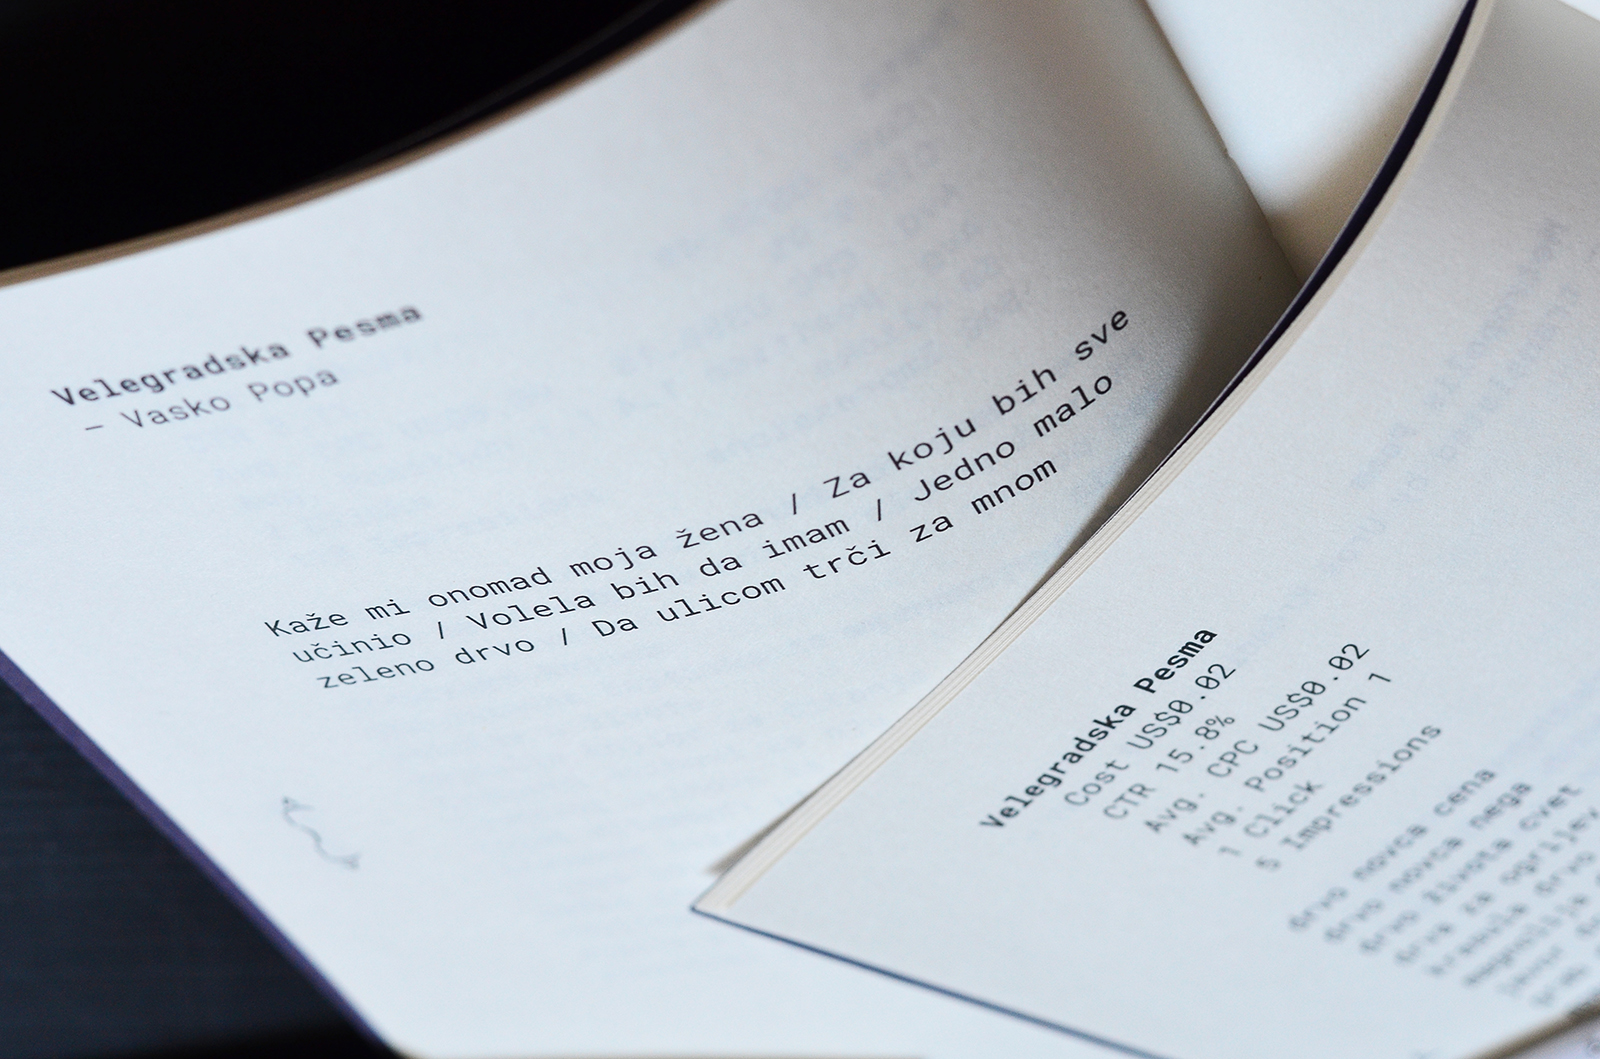 Velegradska Pesma
– Vasko Popa
Kaže mi onomad moja žena / Za koju bih sve
učinio / Volela bih da imam / Jedno malo
zeleno drvo / Da ulicom trči za mnom
Velegradska Pesma
Cost US$0.02
CTR 15.8%
Avg. CPC US$0.02
Avg. Position 1
1 Click
5 Impressions
drvo novca cena
drvo novca nega
drvo života cvet
drva za ogrijev
krabulja drvo
magnolija